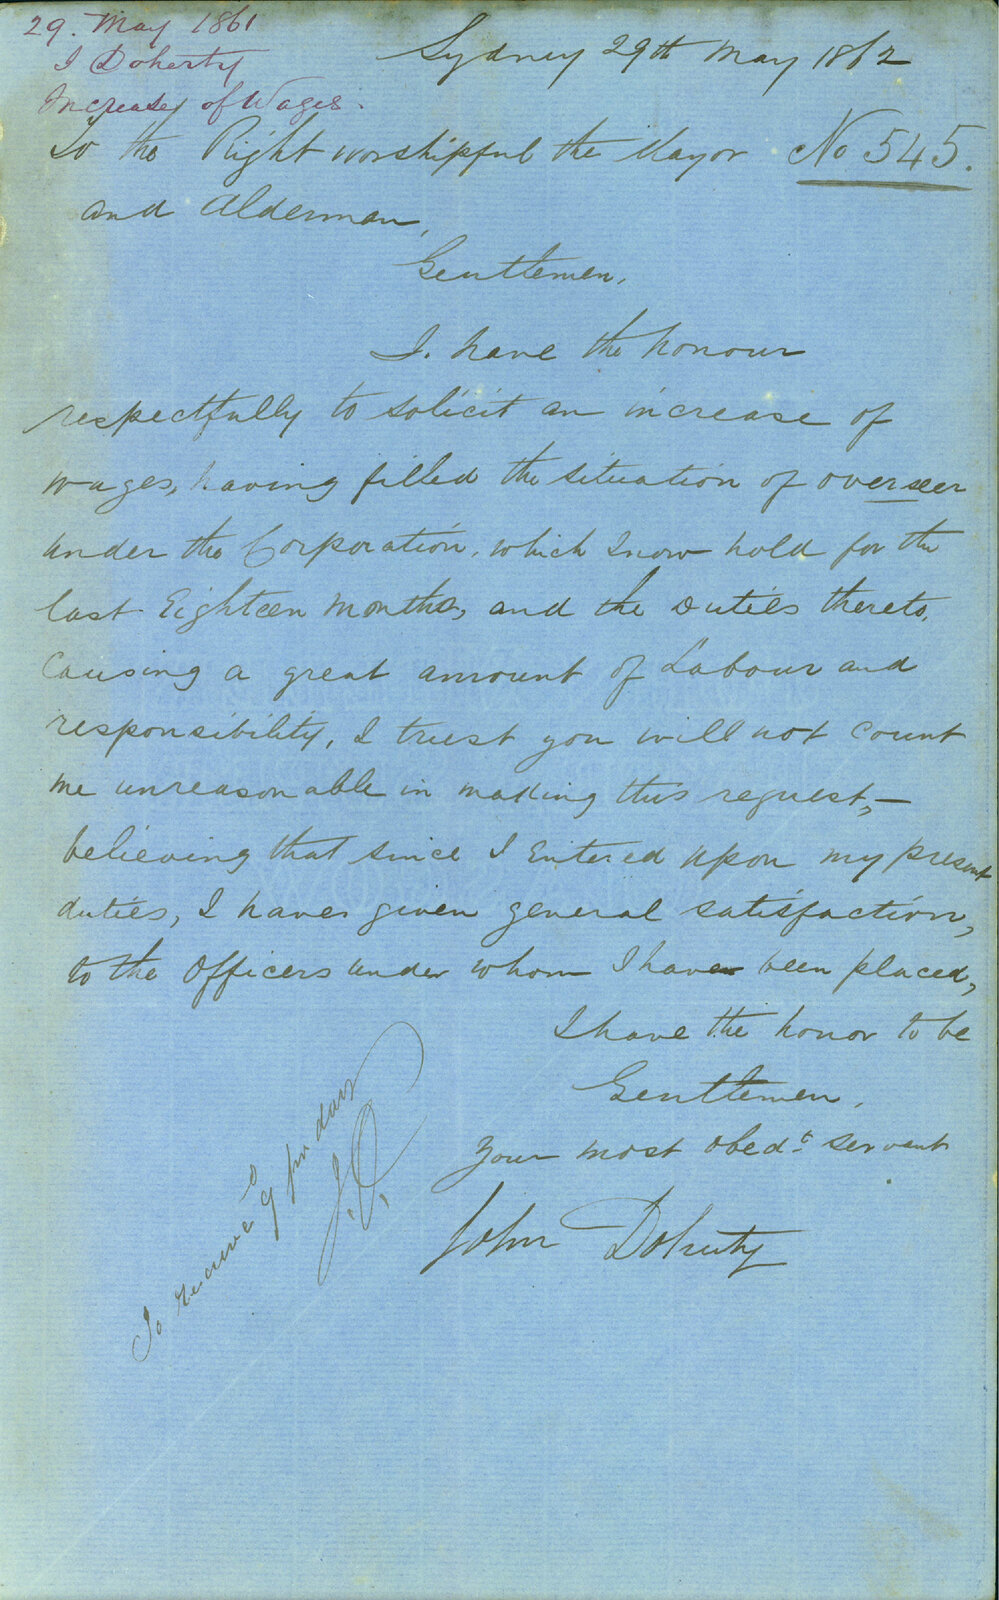 29. May 1861
J Doherty
Increase of Wages.
Sydney 29th May 1862
To the Right worshipful the Mayor No 545.
and Alderman,
Gentlemen,
I. have the honour
respectfully to solicit an increase of
wages, having filled the situation of overseer
under the Corporation, which I now hold for the
last Eighteen Months, and the Duties thereto,
Causing a great amount of Labour and
responsibility, I trust you will not count
me unreasonable in making this request,—
believing that since I Entered upon my present
duties, I have given general satisfaction,
to the Officers under whom I have been placed,
I have the honor to be
Gentlemen,
Your most obedt servant
John Doherty
To receive 9 per day